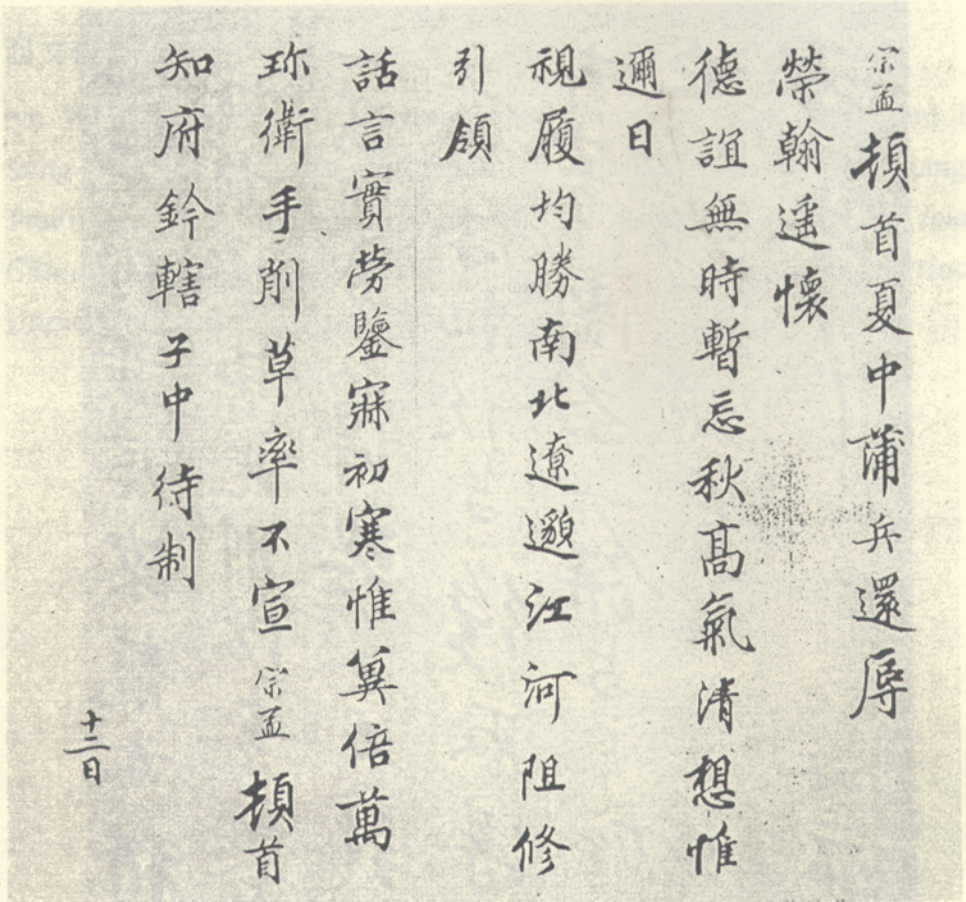 宗孟頓首夏中蒲兵還辱
榮翰遥懷
德誼無時暫忘秋髙氣清想惟
邇日
視履均勝南北遼邈江河阻修
引領
話言實勞鑒寐初寒惟冀倍萬
珎衛手削草率不宣宗孟頓首
知府鈐轄子中待制
十二日